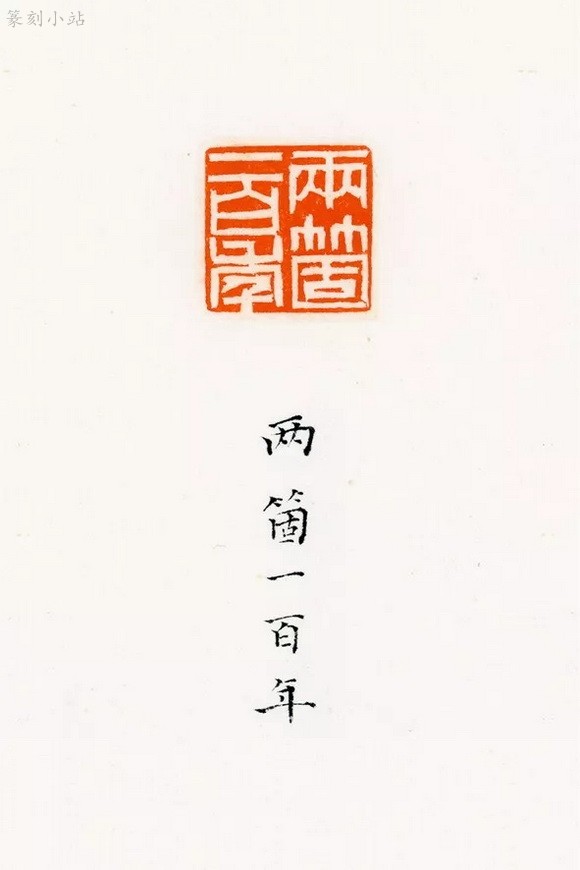 篆刻小站
兩箇
一百年
两箇一百年